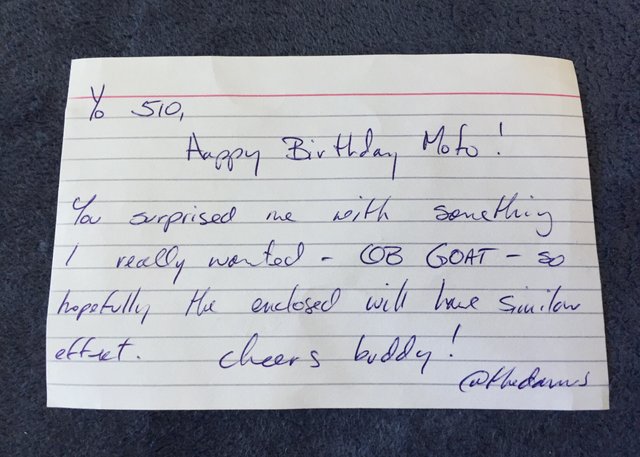 Yo 510,
Happy Birthday Mofo!
You surprised me with something
I really wanted - OB GOAT - so
hopefully the enclosed will have similar
effect. cheers buddy!